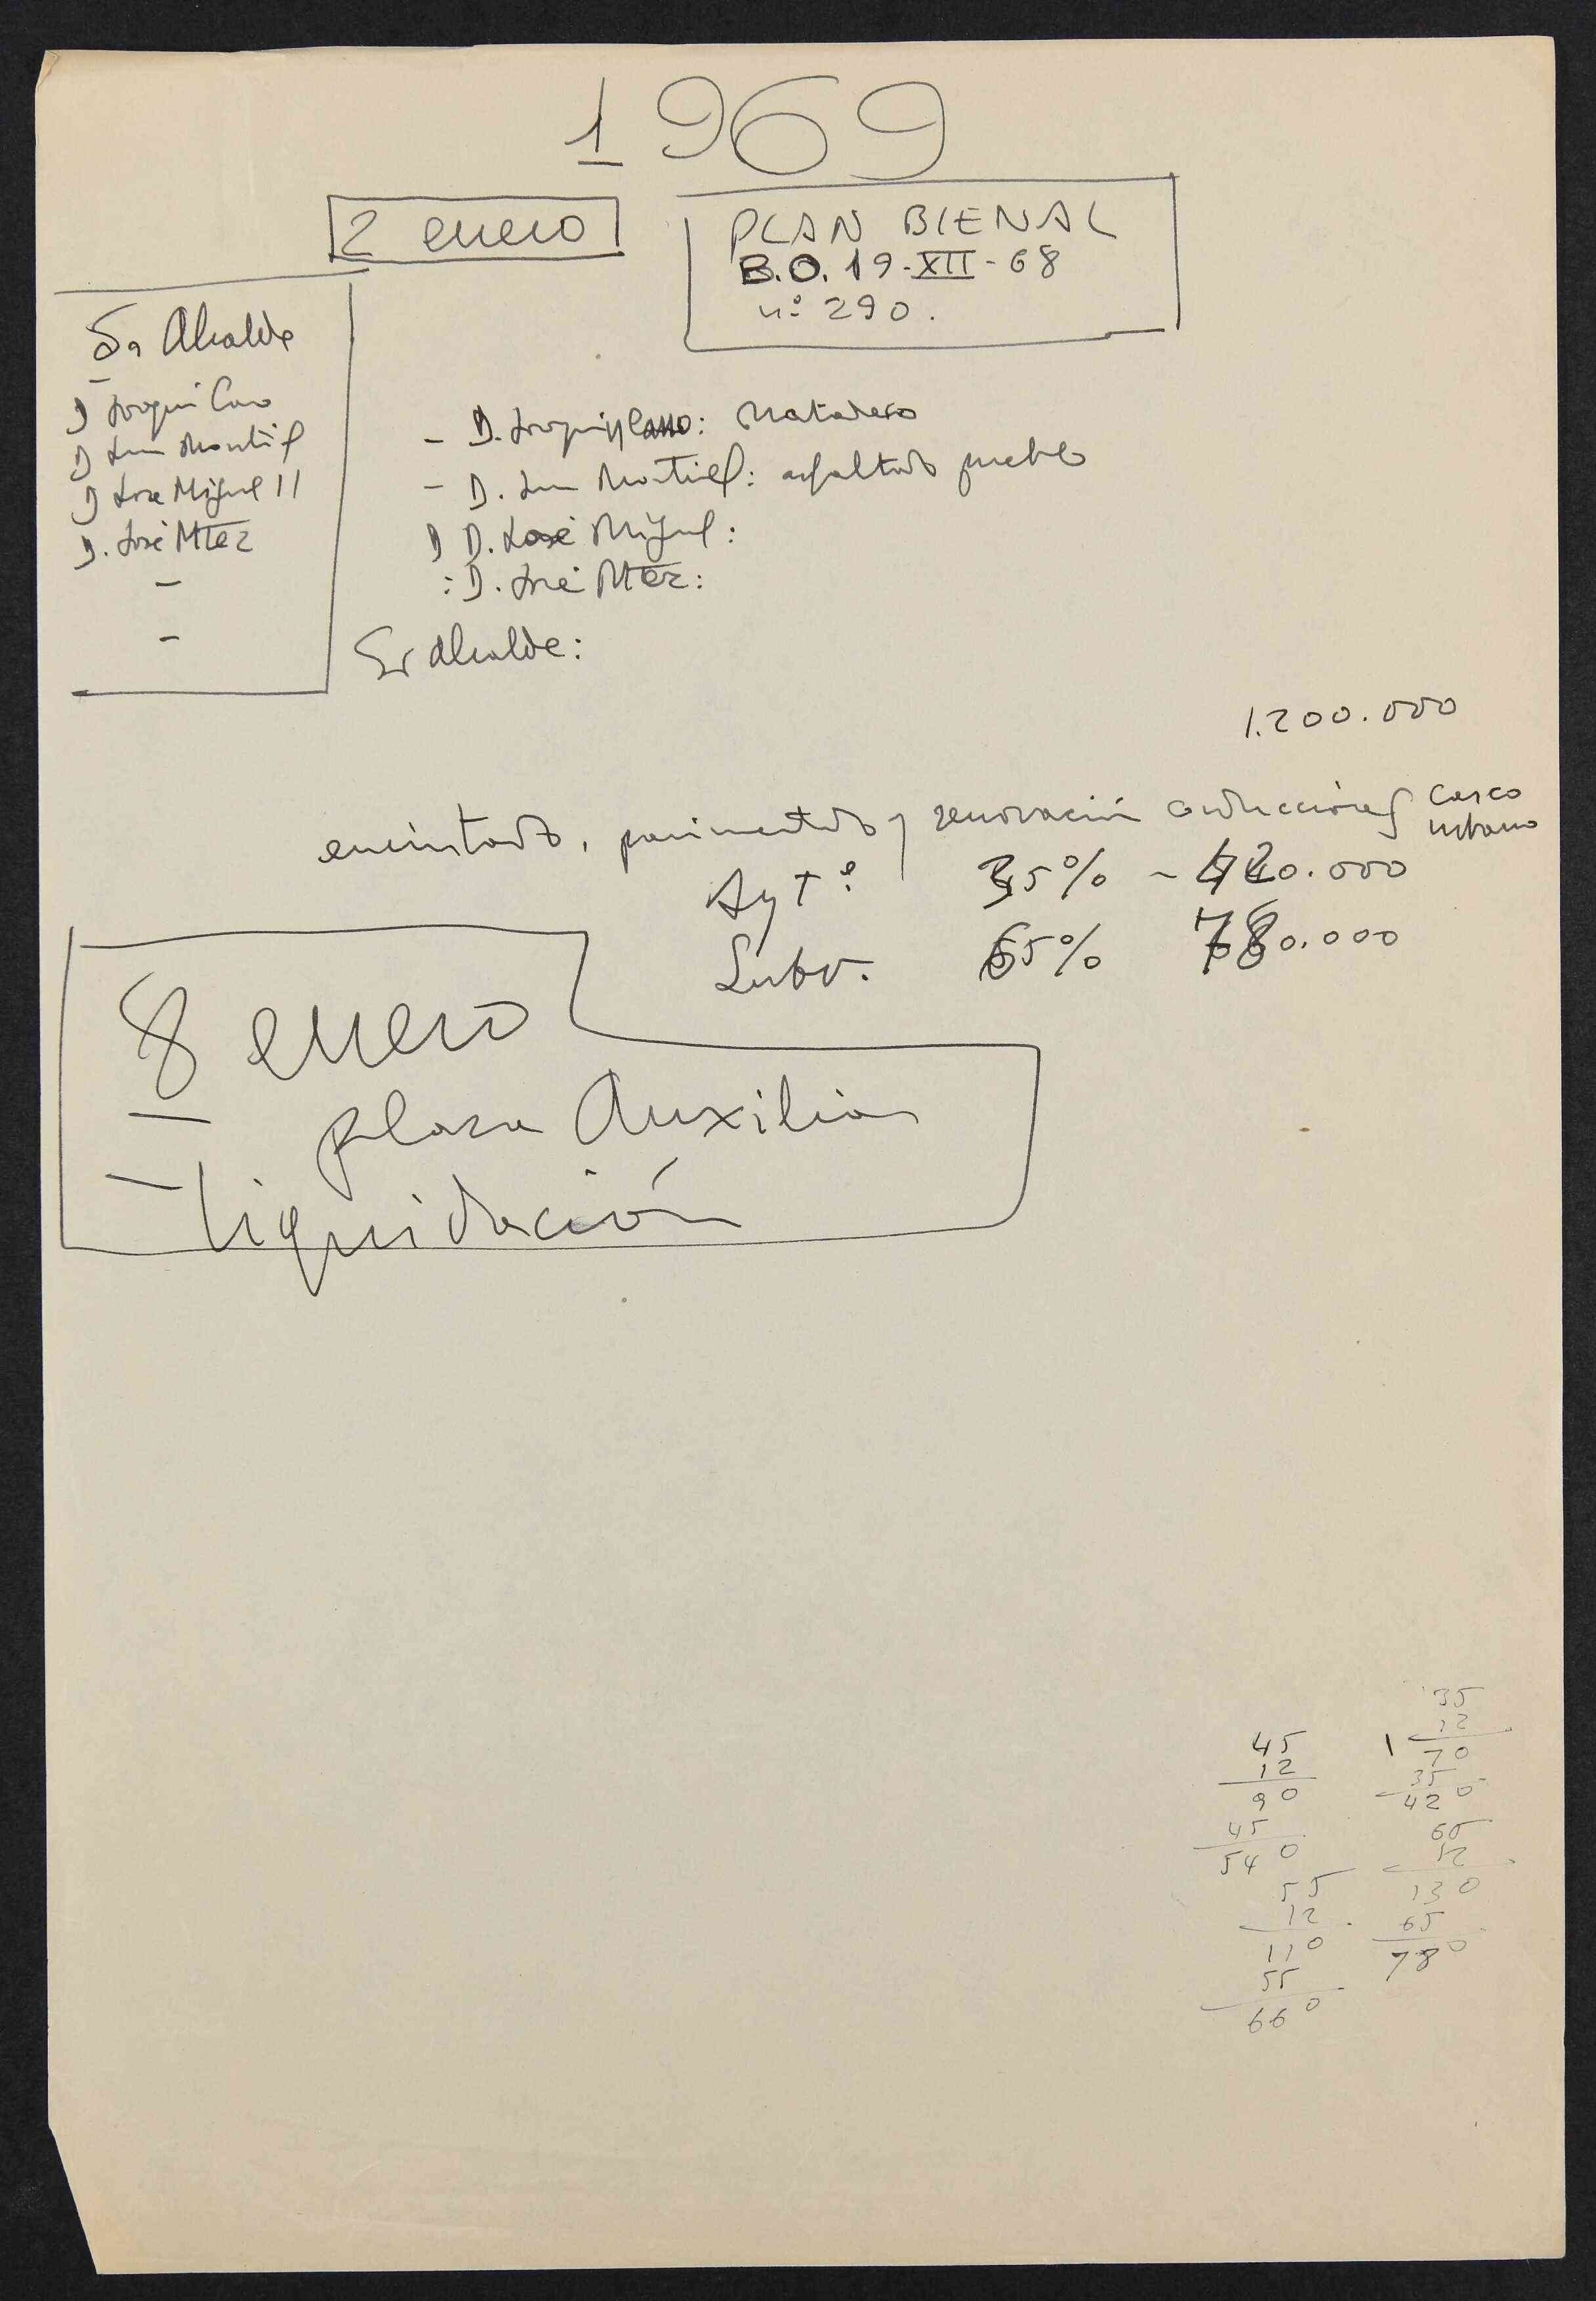 1969
2 enero
PLAN BIENAL
B.O. 19-XII-68
nº 290.
Sr Alcalde
D Joaquin Cano
D Luis Montiel
D Jose Miguel
D. José Mtez
-
-
- D. Joaquin Cano: Matadero
- D. Luis Montiel: asfaltado pueblo
D. José Miguel:
: D. José Mtez:
Sr Alcalde:
1.200.000
encintado, pavimentado y renovación conducciones casco
urbano
Aytº 35% - 420.000
Subv. 65% 780.000
8 enero
- plaza Auxiliar
- liquidación
45
12
90
45
540
55
12
110
55
660
35
12
70
35
420
65
12
130
65
780